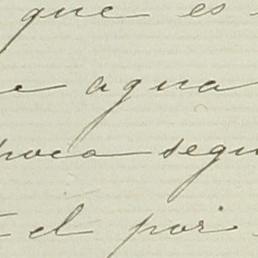 que es
e agua
poca segu
el por